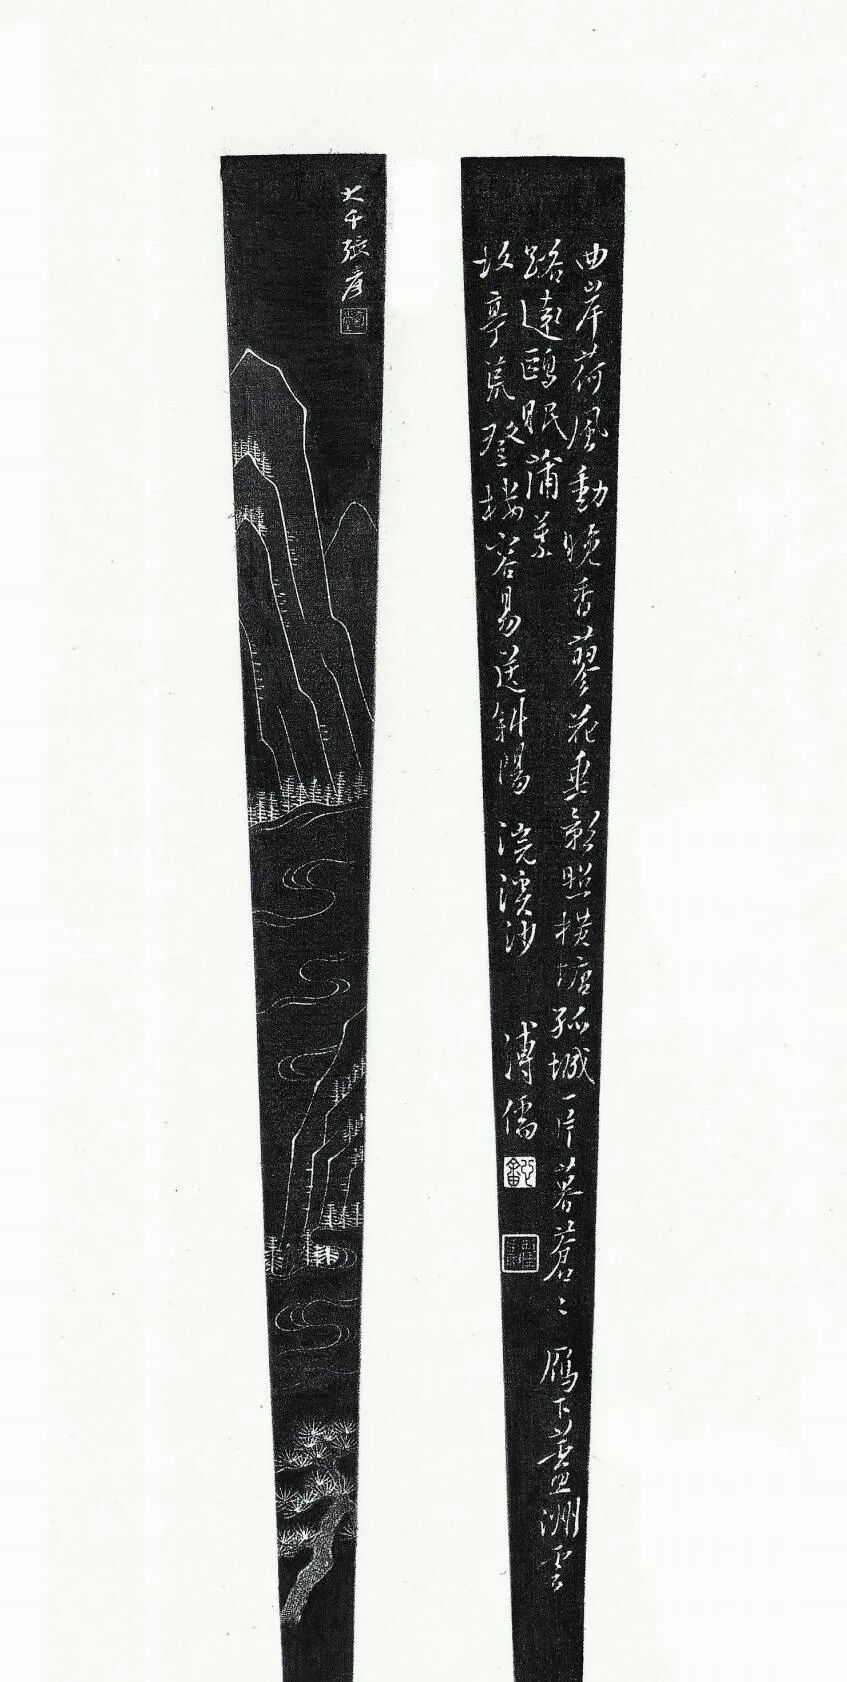 曲岸荷風動晚香蓼花垂影照橫塘孤城一片暮蒼〻雁下蘆洲雲
路遠鷗眠蒲葉
亭荒登樓容易送斜陽 浣溪沙 溥儒
大千張爰